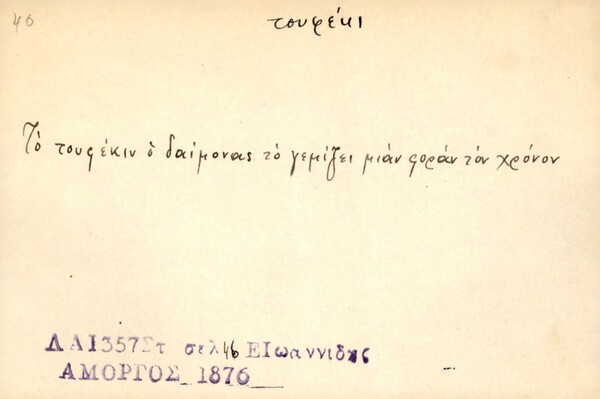 40
τουφέκι
Τὸ τουφέκιν ὁ δαίμονας τὸ γεμίζει μιὰν φορὰν τὸν χρόνον
ΛΑ1357Στ σελ46 ΕΙωαννιδης
ΑΜΟΡΓΟΣ 1876